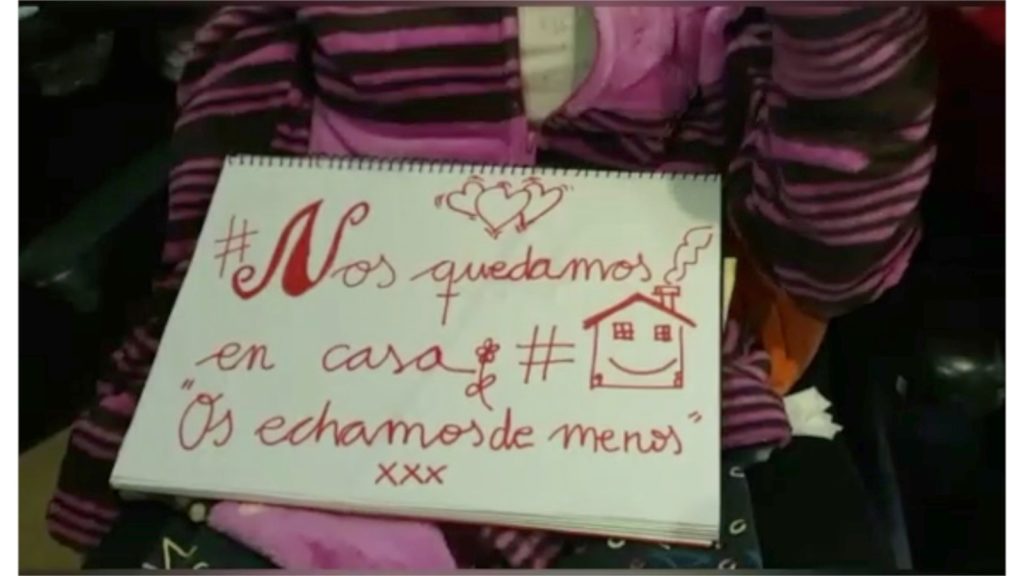 #Nos quedamos
en casa #
"Os echamos de menos"
xxx